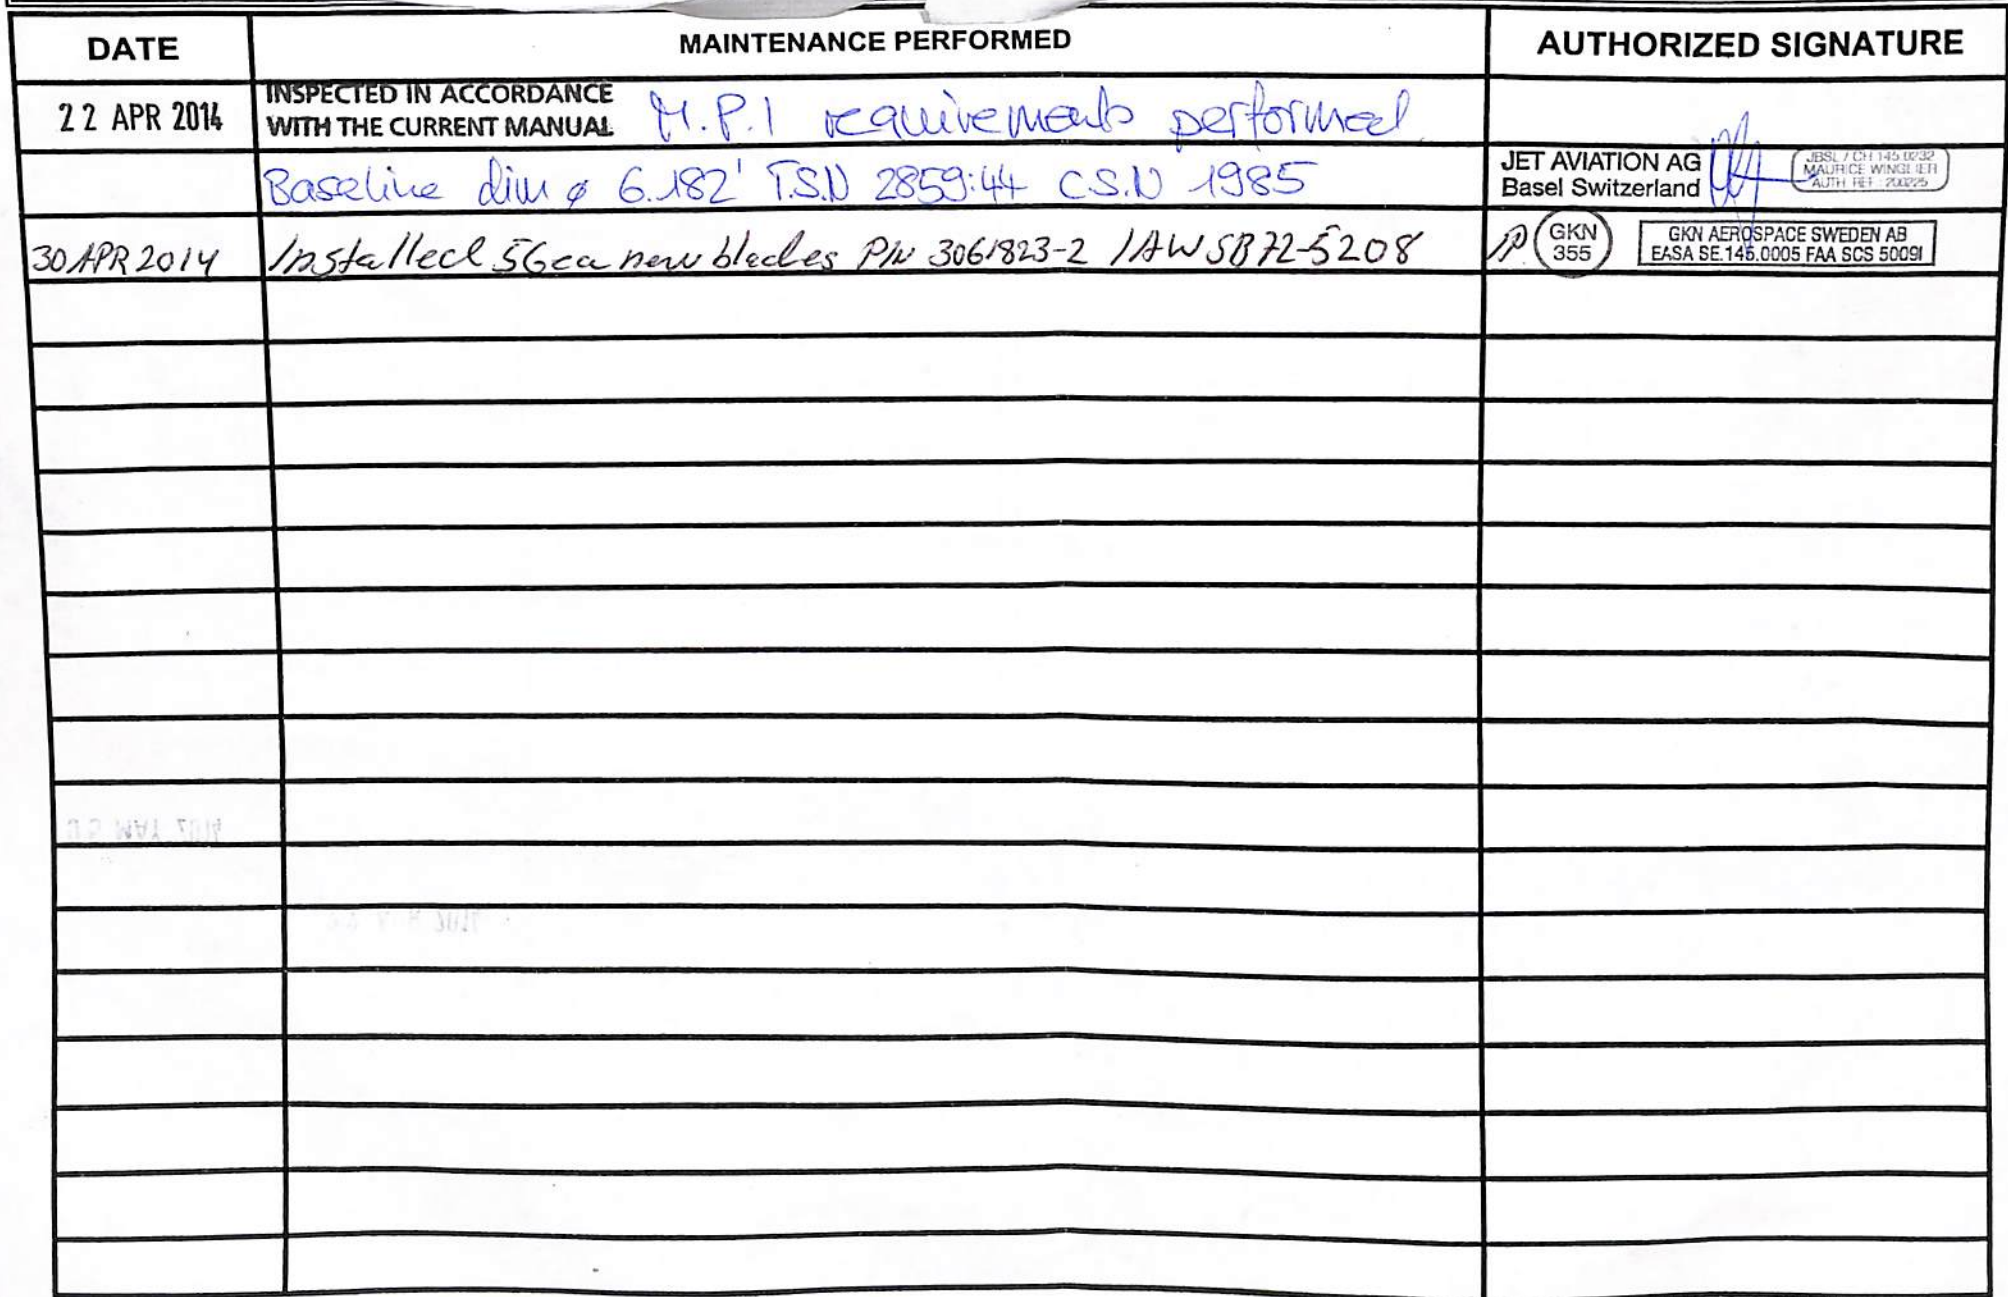 DATE MAINTENANCE PERFORMED AUTHORIZED SIGNATURE
22 APR 2014 INSPECTED IN ACCORDANCE
WITH THE CURRENT MANUAL M.P.I requirements performed
Baseline dim ø 6.182' T.S.N 2859:44 C.S.N 1985
JET AVIATION AG
Basel Switzerland
JBSL / CH 145.0232
MAURICE
AUTH REF : 200225
30 APR 2014 Installed 56ea new blades P/N 3061823-2 IAW SB72-5208
GKN
355
GKN AEROSPACE SWEDEN AB
EASA SE.145.0005 FAA SCS 5009I